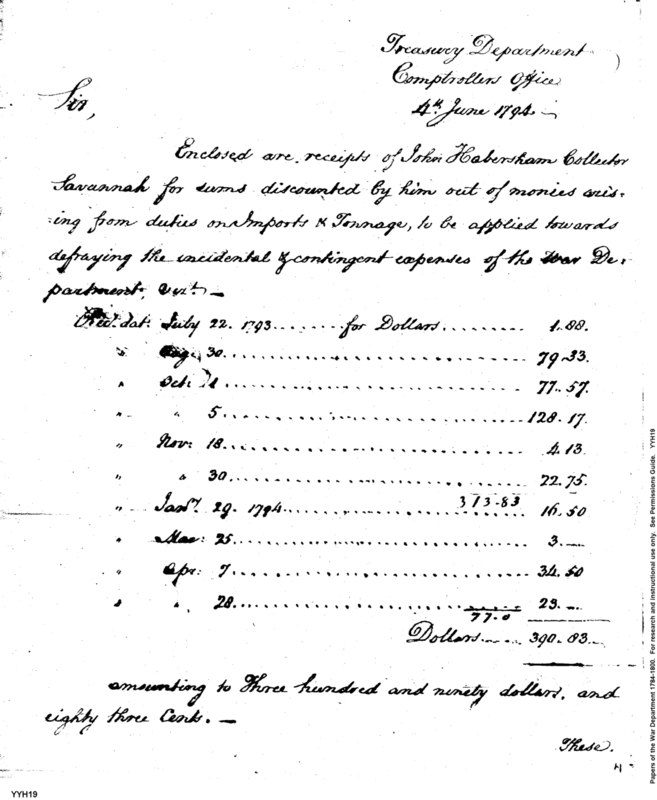 Treasury Department
Comptrollers Office
4th. June 1794. —
Sir,
Enclosed are receipts of John Habersham Collector
Savannah for sums discounted by him out of monies aris-
ing from duties on Imports & Tonnage, to be applied towards
defraying the incidental & contingent expenses of the War De-
partment, Viz. —
Rec. dat. July 22. 1793........for Dollars.......... 1.88.
" Aug. 30........ 79.33.
" Oct. 1........ 77.57.
" " 5........ 128.17.
" Nov: 18........ 4.13
" " 30........ 22.75.
373.83
" Jany. 29. 1794........ 16.50
" Mar: 25........ 3.—
" Apr: 7........ 34.50
" " 28........ 23.—
77.0
Dollars...... 390.83—
amounting to Three hundred and ninety dollars, and
eighty three Cents. —
These.
YYH19
Papers of the War Department 1784-1800. For research and instructional use only. See Permissions Guide. YYH19